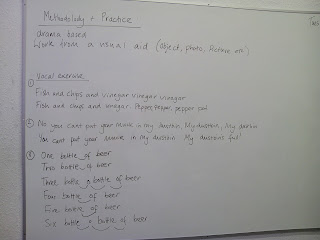 Methodology + Practice
drama based
Work from a visual aid (object, photo, picture etc)
Vocal exercise
① Fish and chips and vinegar vinegar vinegar
Fish and chips and vinegar. Pepper, pepper, pepper pot
② No you cant put your muck in my dustbin, My dustbin, My dustbin
You cant put your muck in my dustbin My dustbins full
③ One bottle of beer
Two bottle of beer
Three bottle, bottle of beer
Four bottle of beer
Five bottle of beer
Six bottle, bottle of beer